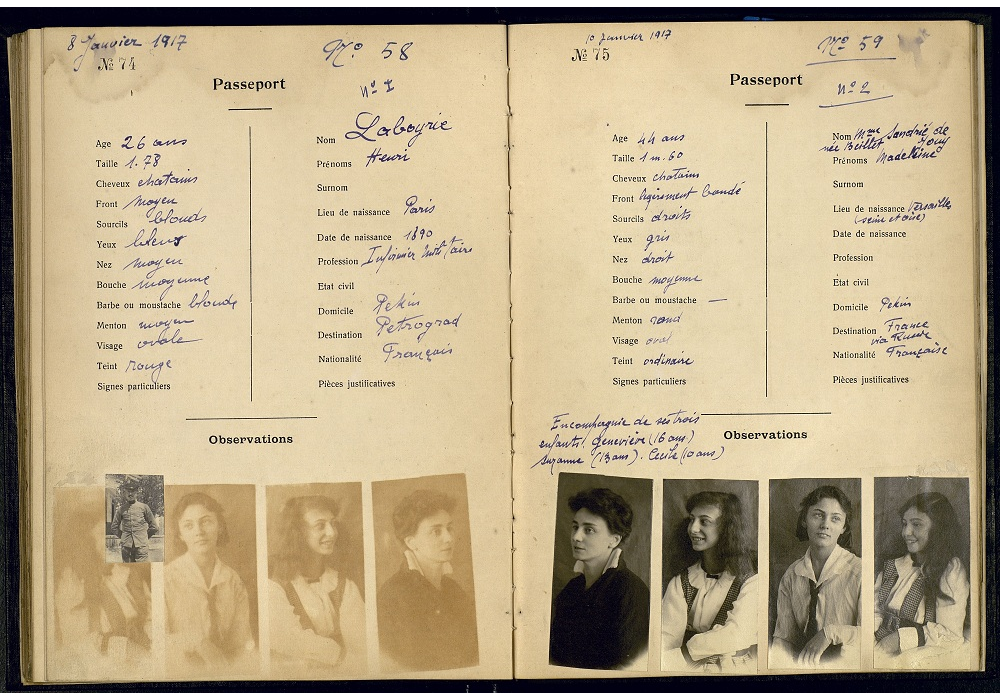 8 Janvier 1917
No 74
Nº 58
Passeport
Nº 1
Age 26 ans
Taille 1.78
Cheveux chatains
Front moyen
Sourcils blonds
Yeux bleus
Nez moyen
Bouche moyenne
Barbe ou moustache blonde
Menton moyen
Visage ovale
Teint rouge
Signes particuliers
Nom Laboyrie
Prénoms Henri
Surnom
Lieu de naissance Paris
Date de naissance 1890
Profession Infirmier militaire
Etat civil
Domicile Pekin
Destination Petrograd
Nationalité Français
Pièces justificatives
Observations
10 Janvier 1917
No 75
Nº 59
Passeport
nº 2
Age 44 ans
Taille 1 m. 60
Cheveux chatains
Front légèrement bombé
Sourcils droits
Yeux gris
Nez droit
Bouche moyenne
Barbe ou moustache —
Menton rond
Visage oval
Teint ordinaire
Signes particuliers
Nom Mme Sandrié de
née Beillet Jouy
Prénoms Madeleine
Surnom
Lieu de naissance Versailles
(seine et oise)
Date de naissance
Profession
Etat civil
Domicile Pekin
Destination France
via Russie
Nationalité Française
Pièces justificatives
Observations
En compagnie de ses trois
enfants: Geneviève (16 ans)
Suzanne (13 ans). Cecile (10 ans)